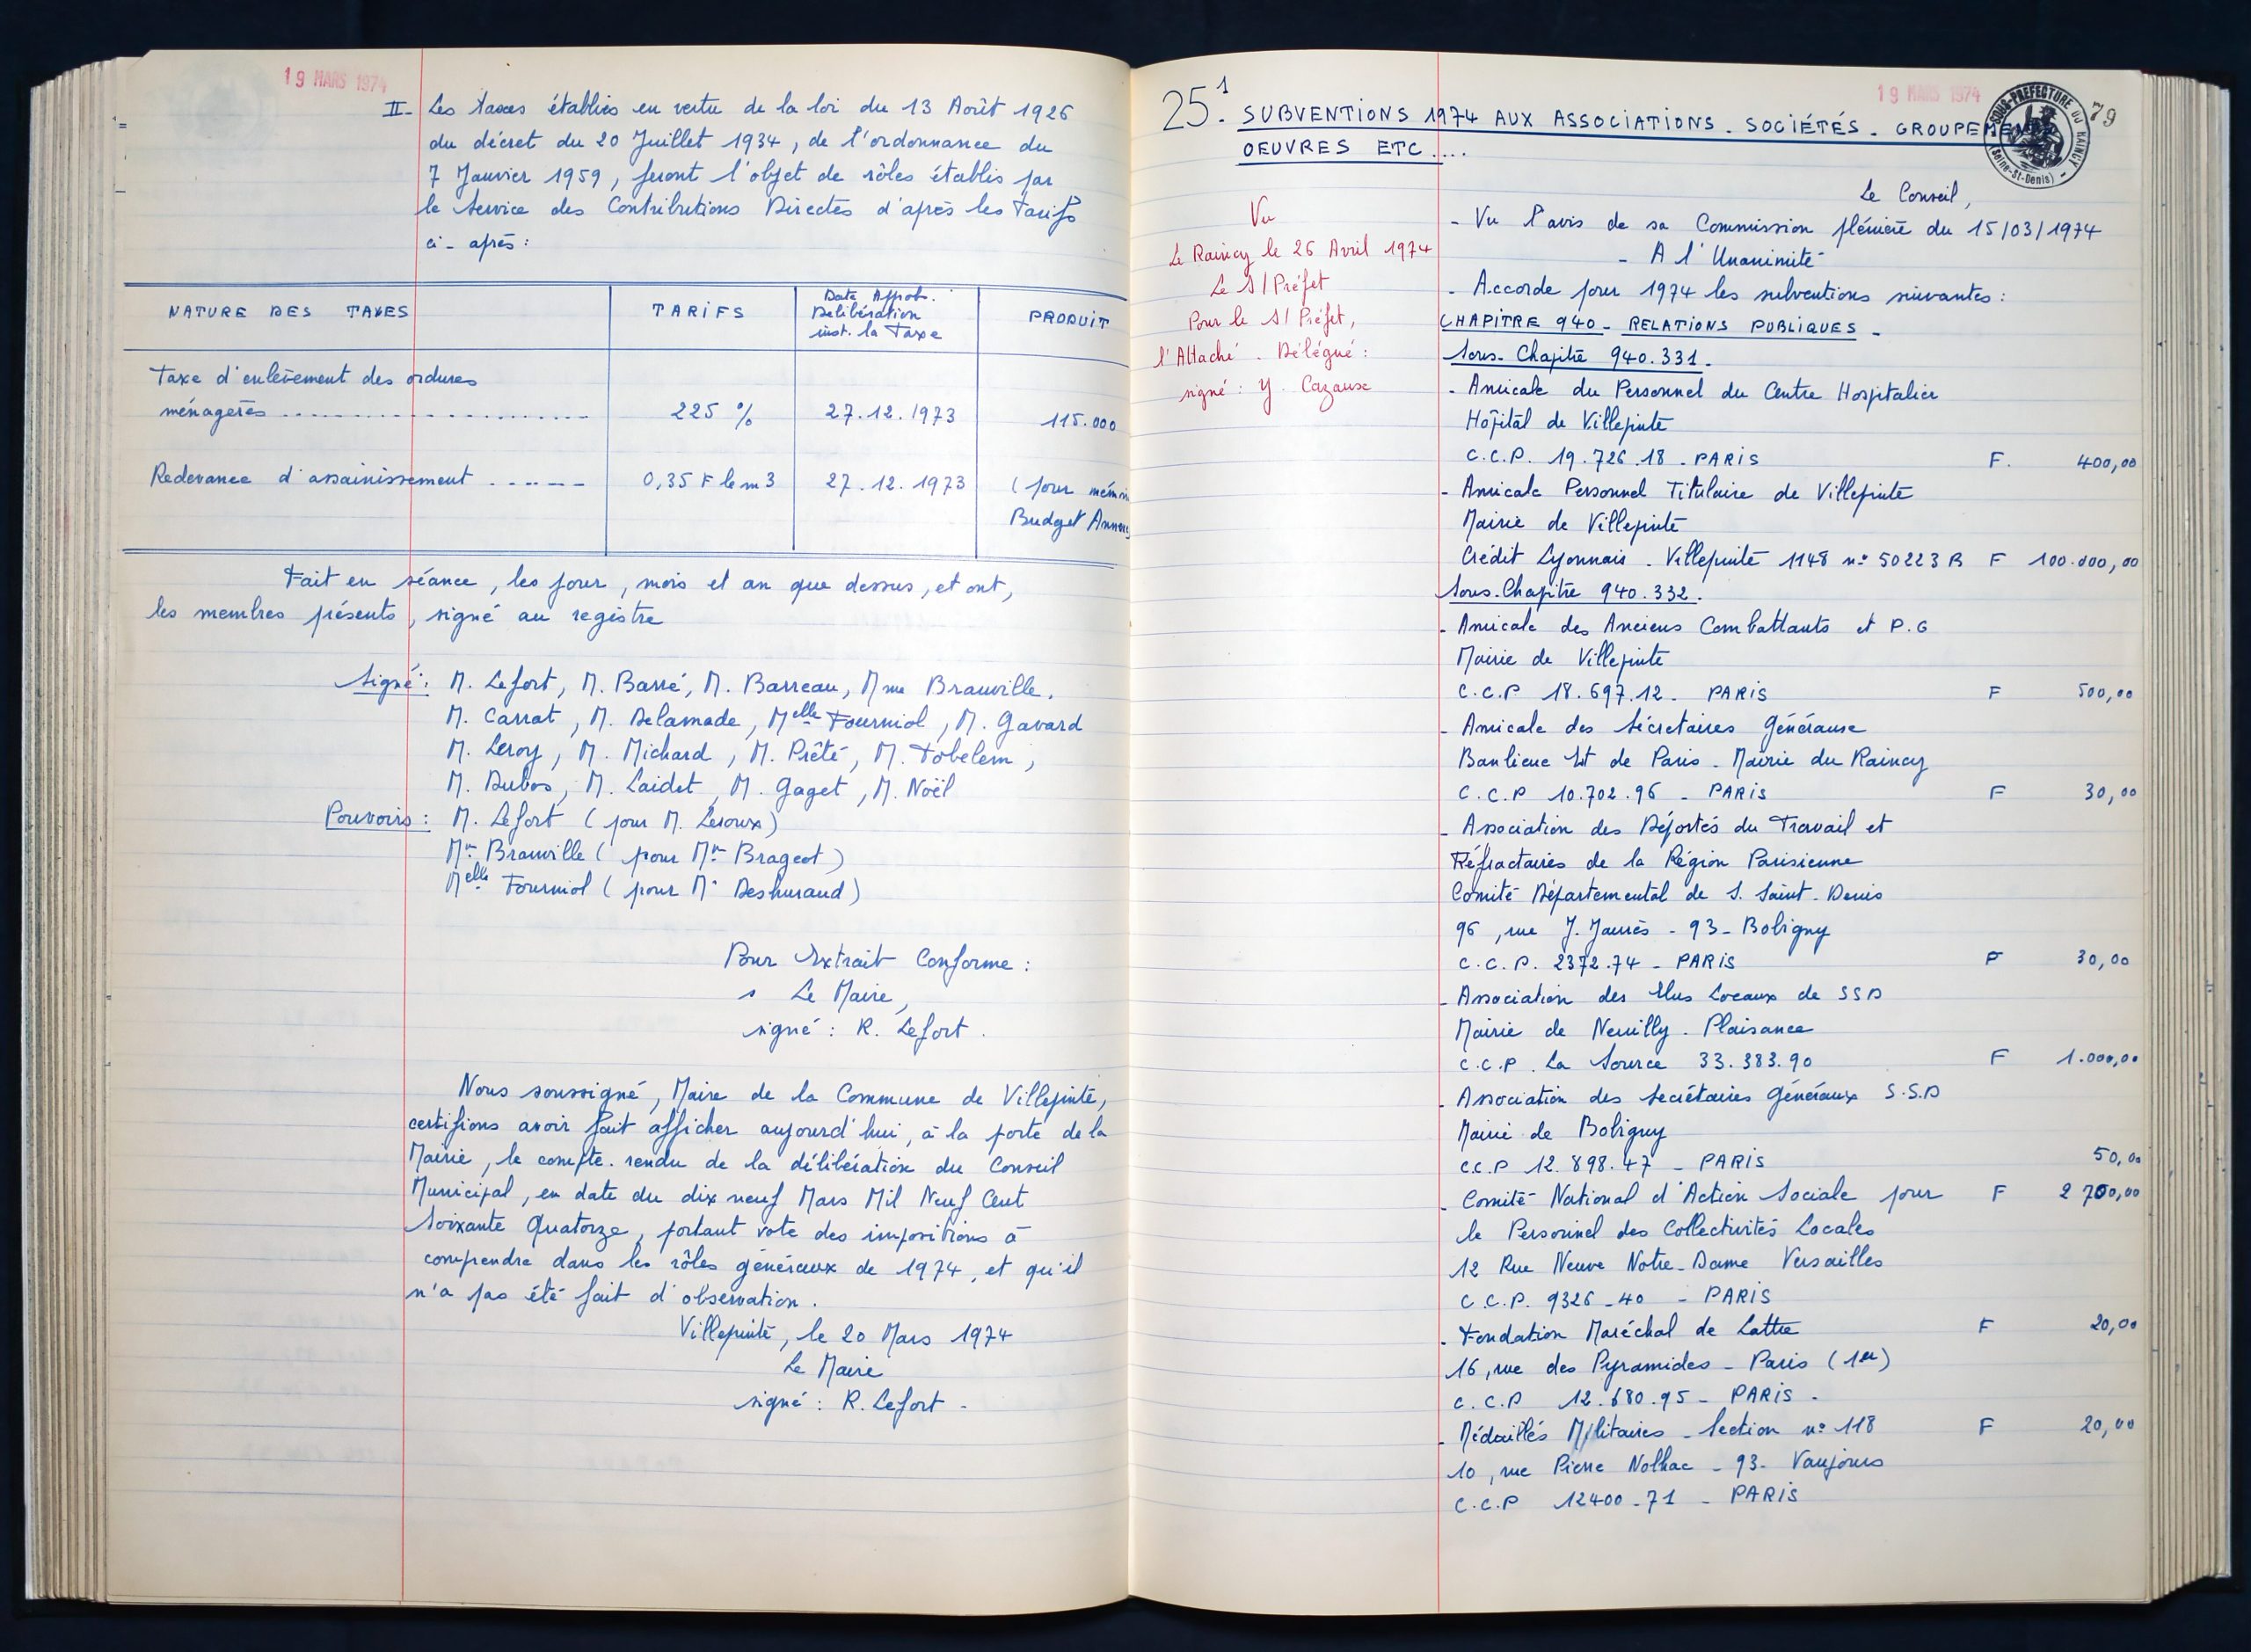 19 MARS 1974
II_ Les taxes établies en vertu de la loi du 13 Août 1926
du décret du 20 Juillet 1934, de l'ordonnance du
7 Janvier 1959, feront l'objet de rôles établis par
le Service des Contributions Directes d'après les Tarifs
ci-après :
NATURE DES TAXES
TARIFS
Date Approb.
Délibération
inst. la Taxe
PRODUIT
Taxe d'enlèvement des ordures
ménagères ......................
225 %
27.12.1973
115.000
Redevance d'assainissement ......
0,35 F le m3
27.12.1973
( pour mémoi
Budget Annex
Fait en séance, les jour, mois et an que dessus, et ont,
les membres présents, signé au registre
Signé : M. Lefort, M. Barré, M. Barreau, Mme Brauville,
M. Carrat, M. Delamade, Melle Fourniol, M. Gavard
M. Leroy, M. Michard, M. Prêté, M. Tobelem,
M. Dubos, M. Laidet, M. Gaget, M. Noël
Pouvoirs : M. Lefort ( pour M. Leroux)
Mme Brauville ( pour Mme Brageot)
Melle Fourniol ( pour M. Deshuraud)
Pour Extrait Conforme :
Le Maire,
signé : R. Lefort.
Nous soussigné, Maire de la Commune de Villepinte,
certifions avoir fait afficher aujourd'hui, à la porte de la
Mairie, le compte-rendu de la délibération du Conseil
Municipal, en date du dix neuf Mars Mil Neuf Cent
Soixante Quatorze, portant vote des impositions à
comprendre dans les rôles généraux de 1974, et qu'il
n'a pas été fait d'observation.
Villepinte, le 20 Mars 1974
Le Maire
signé : R. Lefort -
19 MARS 1974
SOUS-PREFECTURE DU RAINCY
(Seine-St-Denis)
79
25.1 SUBVENTIONS 1974 AUX ASSOCIATIONS. SOCIÉTÉS. GROUPEMENTS
OEUVRES ETC....
Vu
Le Raincy le 26 Avril 1974
Le S/Préfet
Pour le S/Préfet,
l'Attaché. Délégué :
signé : Y. Cazaux
Le Conseil,
- Vu l'avis de sa Commission plénière du 15/03/1974
- A l'Unanimité -
- Accorde pour 1974 les subventions suivantes :
CHAPITRE 940 - RELATIONS PUBLIQUES -
Sous-Chapitre 940.331.
- Amicale du Personnel du Centre Hospitalier
Hôpital de Villepinte
C.C.P. 19.726.18 - PARIS F. 400,00
- Amicale Personnel Titulaire de Villepinte
Mairie de Villepinte
Crédit Lyonnais - Villepinte 1148 n° 50223 B F 100.000,00
Sous-Chapitre 940.332.
- Amicale des Anciens Combattants et P.G
Mairie de Villepinte
C.C.P 18.697.12 - PARIS F 500,00
- Amicale des Sécretaires Générause
Banlieue Est de Paris - Mairie du Raincy
C.C.P 10.702.96 - PARIS F 30,00
- Association des Déportés du Travail et
Réfractaires de la Région Parisienne
Comité Départemental de S. Saint-Denis
96, rue J. Jaurès - 93 - Bobigny
C.C.P. 2372.74 - PARIS F 30,00
- Association des Elus Locaux de SSD
Mairie de Neuilly-Plaisance
C.C.P. La Source 33.383.90 F 1.000,00
- Association des Secrétaires Généraux S.S.D
Mairie de Bobigny
C.C.P 12.898.47 - PARIS 50,00
- Comité National d'Action Sociale pour F 2 700,00
le Personnel des Collectivités Locales
12 Rue Neuve Notre-Dame Versailles
C.C.P. 9326-40 - PARIS
- Fondation Maréchal de Lattre F 20,00
16, rue des Pyramides - Paris (1er)
C.C.P 12.680.95 - PARIS -
- Médaillés Militaires - Section n° 118 F 20,00
10, rue Pierre Nolhac - 93 - Vaujours
C.C.P 12400-71 - PARIS